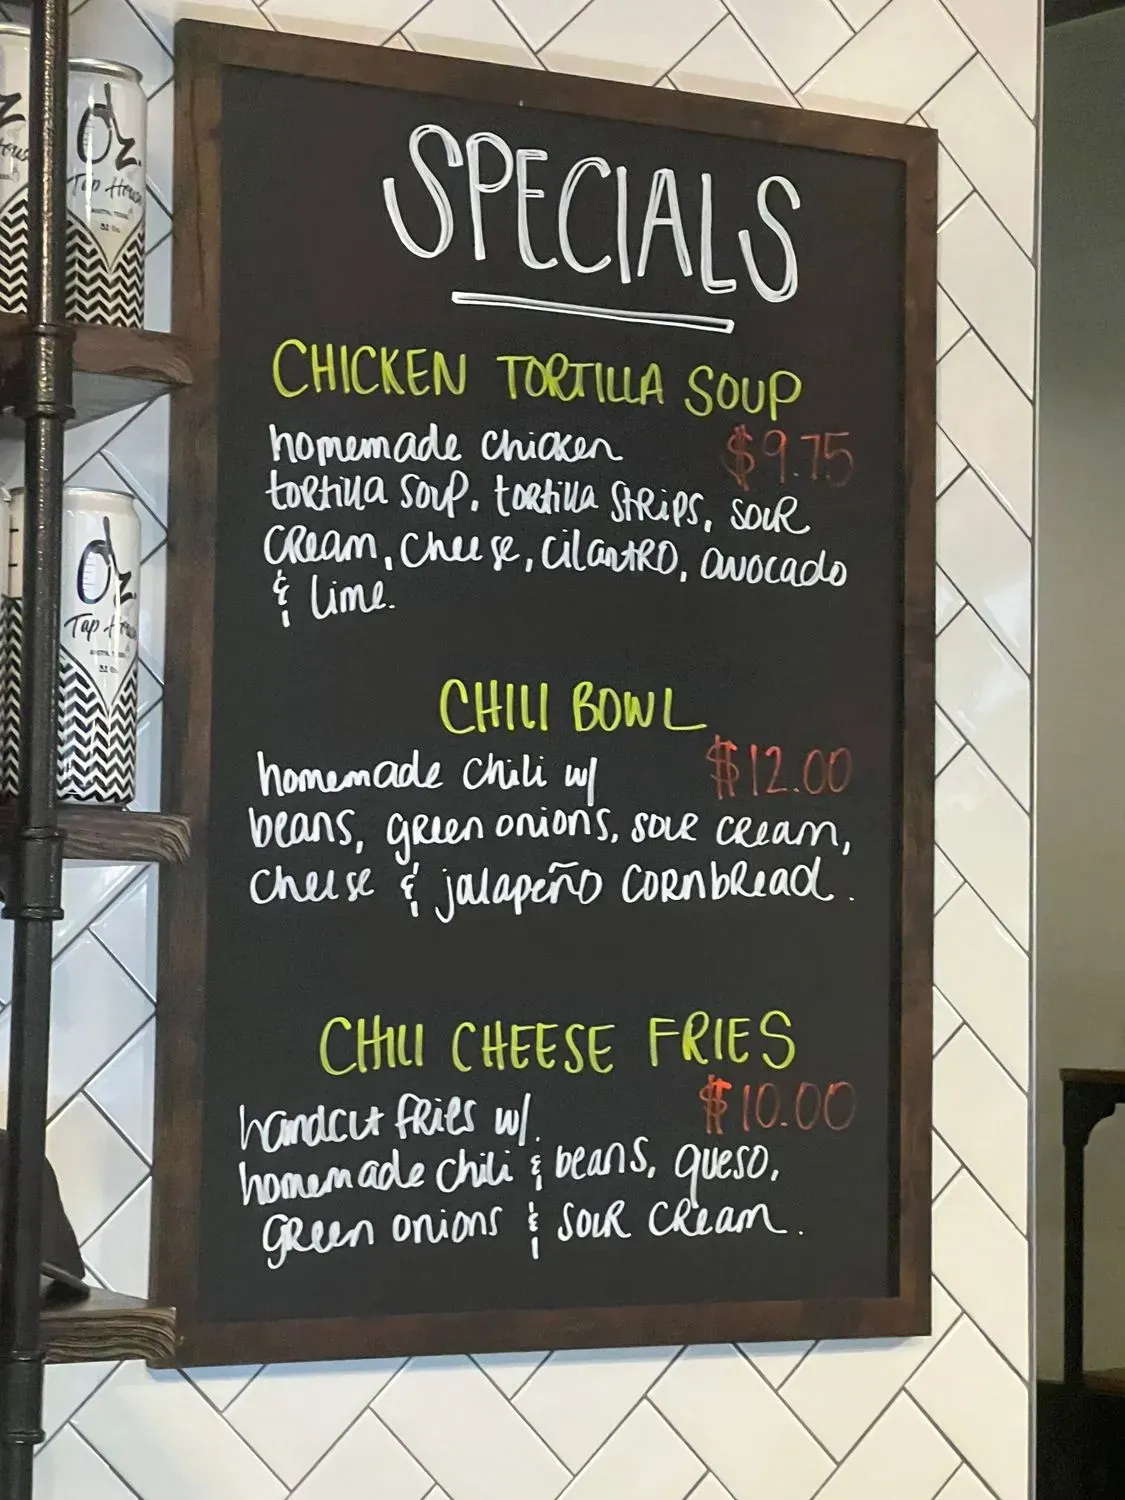 SPECIALS
CHICKEN TORTILLA SOUP
homemade chicken $9.75
tortilla soup, tortilla strips, sour
cream, cheese, cilantro, avocado
& lime.
CHILI BOWL
homemade chili w/ $12.00
beans, green onions, sour cream,
cheese & jalapeño cornbread.
CHILI CHEESE FRIES
handcut fries w/ $10.00
homemade chili & beans, queso,
green onions & sour cream.
Oz.
Tap House
32 Oz.
Oz.
Tap House
32 Oz.